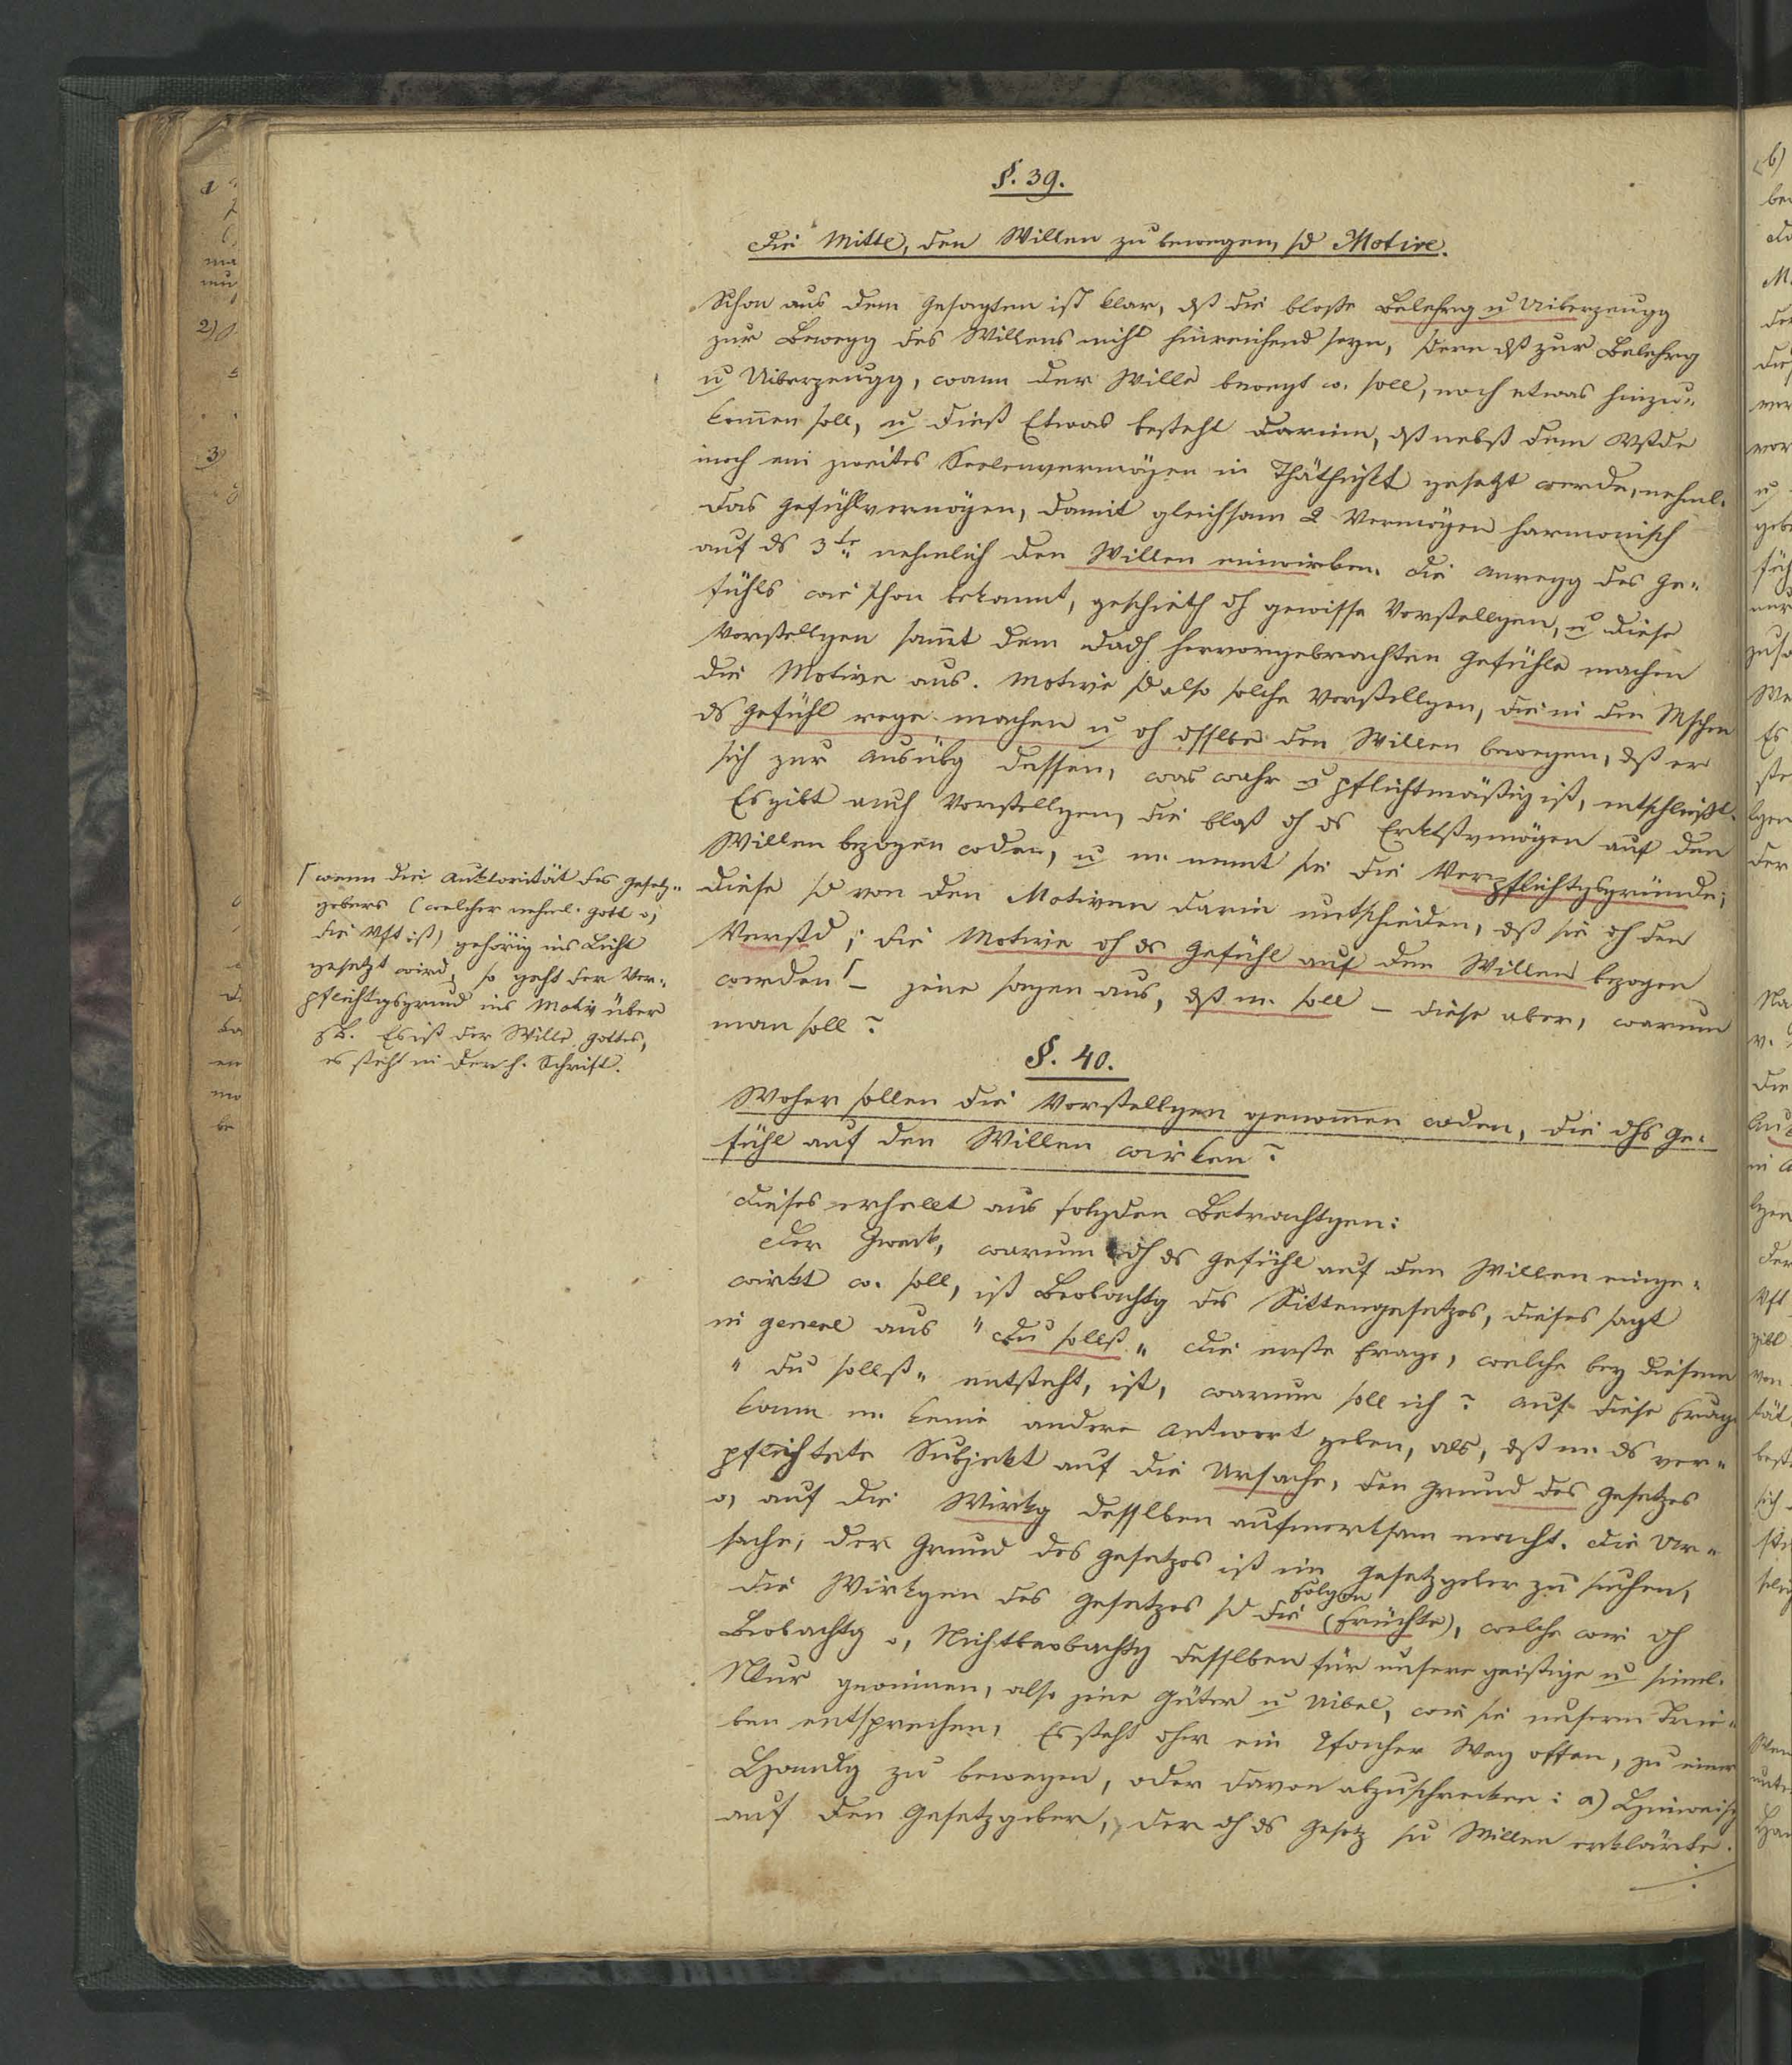 §. 39.
Die Mittel, den Willen zu bewegen, sd Motive.
Schon aus dem Gesagten ist klar, dß die bloße Belehrg u Uiberzeugg
zur Bewegg des Willens nicht hinreichend seyn, sdern dß zur Belehrg
u Uiberzeugg, wann der Wille bewegt w. soll, noch etwas hinzu-
kom̄en soll, u dieß Etwas besteht darinn, dß nebst dem Vstde
noch ein zweites Seelenvermögen in Thäthigkt gesetzt werde, nehml.
das Gefühlvermögen, damit gleichsam 2 Vermögen harmonisch
auf ds 3te nehmlich den Willen einwirken. Die Anregg des Ge-
fühls wie schon bekannt, geschieth dh gewisse Vorstellgen, u diese
Vorstellgen sam̄t dem dadh hervorgebrachten Gefühle machen
die Motive aus. Motive sd also solche Vorstellgen, die in den Mschen
ds Gefühl rege machen u dh dsslbe den Willen bewegen, dß er
sich zur Ausübg dessen, was wahr u pflichtmäßig ist, entschließt.
Es gibt auch Vorstellgen, die bloß dh ds Erktßvmögen auf den
Willen bezogen wden, u m. nennt sie die Verpflichtgsgründe;
diese sd von den Motiven darin untschieden, dß sie dh den
Verstd; die Motive dh ds Gefühl auf den Willen bezogen
werden ſ – jene sagen aus, dß m. soll – diese aber, warum
man soll?
ſ wenn die Auktorität des Gesetz-
gebers (welcher nehml. Gott o,
die Vft ist) gehörig ins Licht
gesetzt wird, so geht der Ver-
pflichtgsgrund ins Motiv über
z B. Es ist der Wille Gottes,
es steht in der h. Schrift.
§. 40.
Woher sollen die Vorstellgen genom̄en wden, die dhs Ge-
fühl auf den Willen wirken?
Dieses erhellt aus folgden Betrachtgen:
Der Zweck, warum dh ds Gefühl auf den Willen einge-
wirkt w. soll, ist Beobachtg des Sittengesetzes, dieses sagt
in genere aus "du sollst" Die erste Frage, welche bey diesem
"du sollst" entsteht, ist, warum soll ich? Auf diese Frage
kann m. keine andere Antwort geben, als, dß m. ds ver-
pflichtete Subjekt auf die Ursache, den Grund des Gesetzes
o, auf die Wirkg desslben aufmerksam macht. Die Ur-
sache, der Grund des Gesetzes ist im Gesetzgeber zu suchen,
Folgen
die Wirkgen des Gesetzes sd die (Früchte), welche wir dh
Beobachtg o, Nichtbeobachtg desslben für unsere geistige u sinnl.
Ntur gewinnen, also jene Güter u Uibel, wie sie unsern Trie-
ben entsprechen. Es steht dher ein 2facher Weg offen, zu einer
Handlg zu bewegen, oder davon abzuschrecken: a) Hinweisg
auf den Gesetzgeber, der dh ds Gesetz sn Willen erklärte.